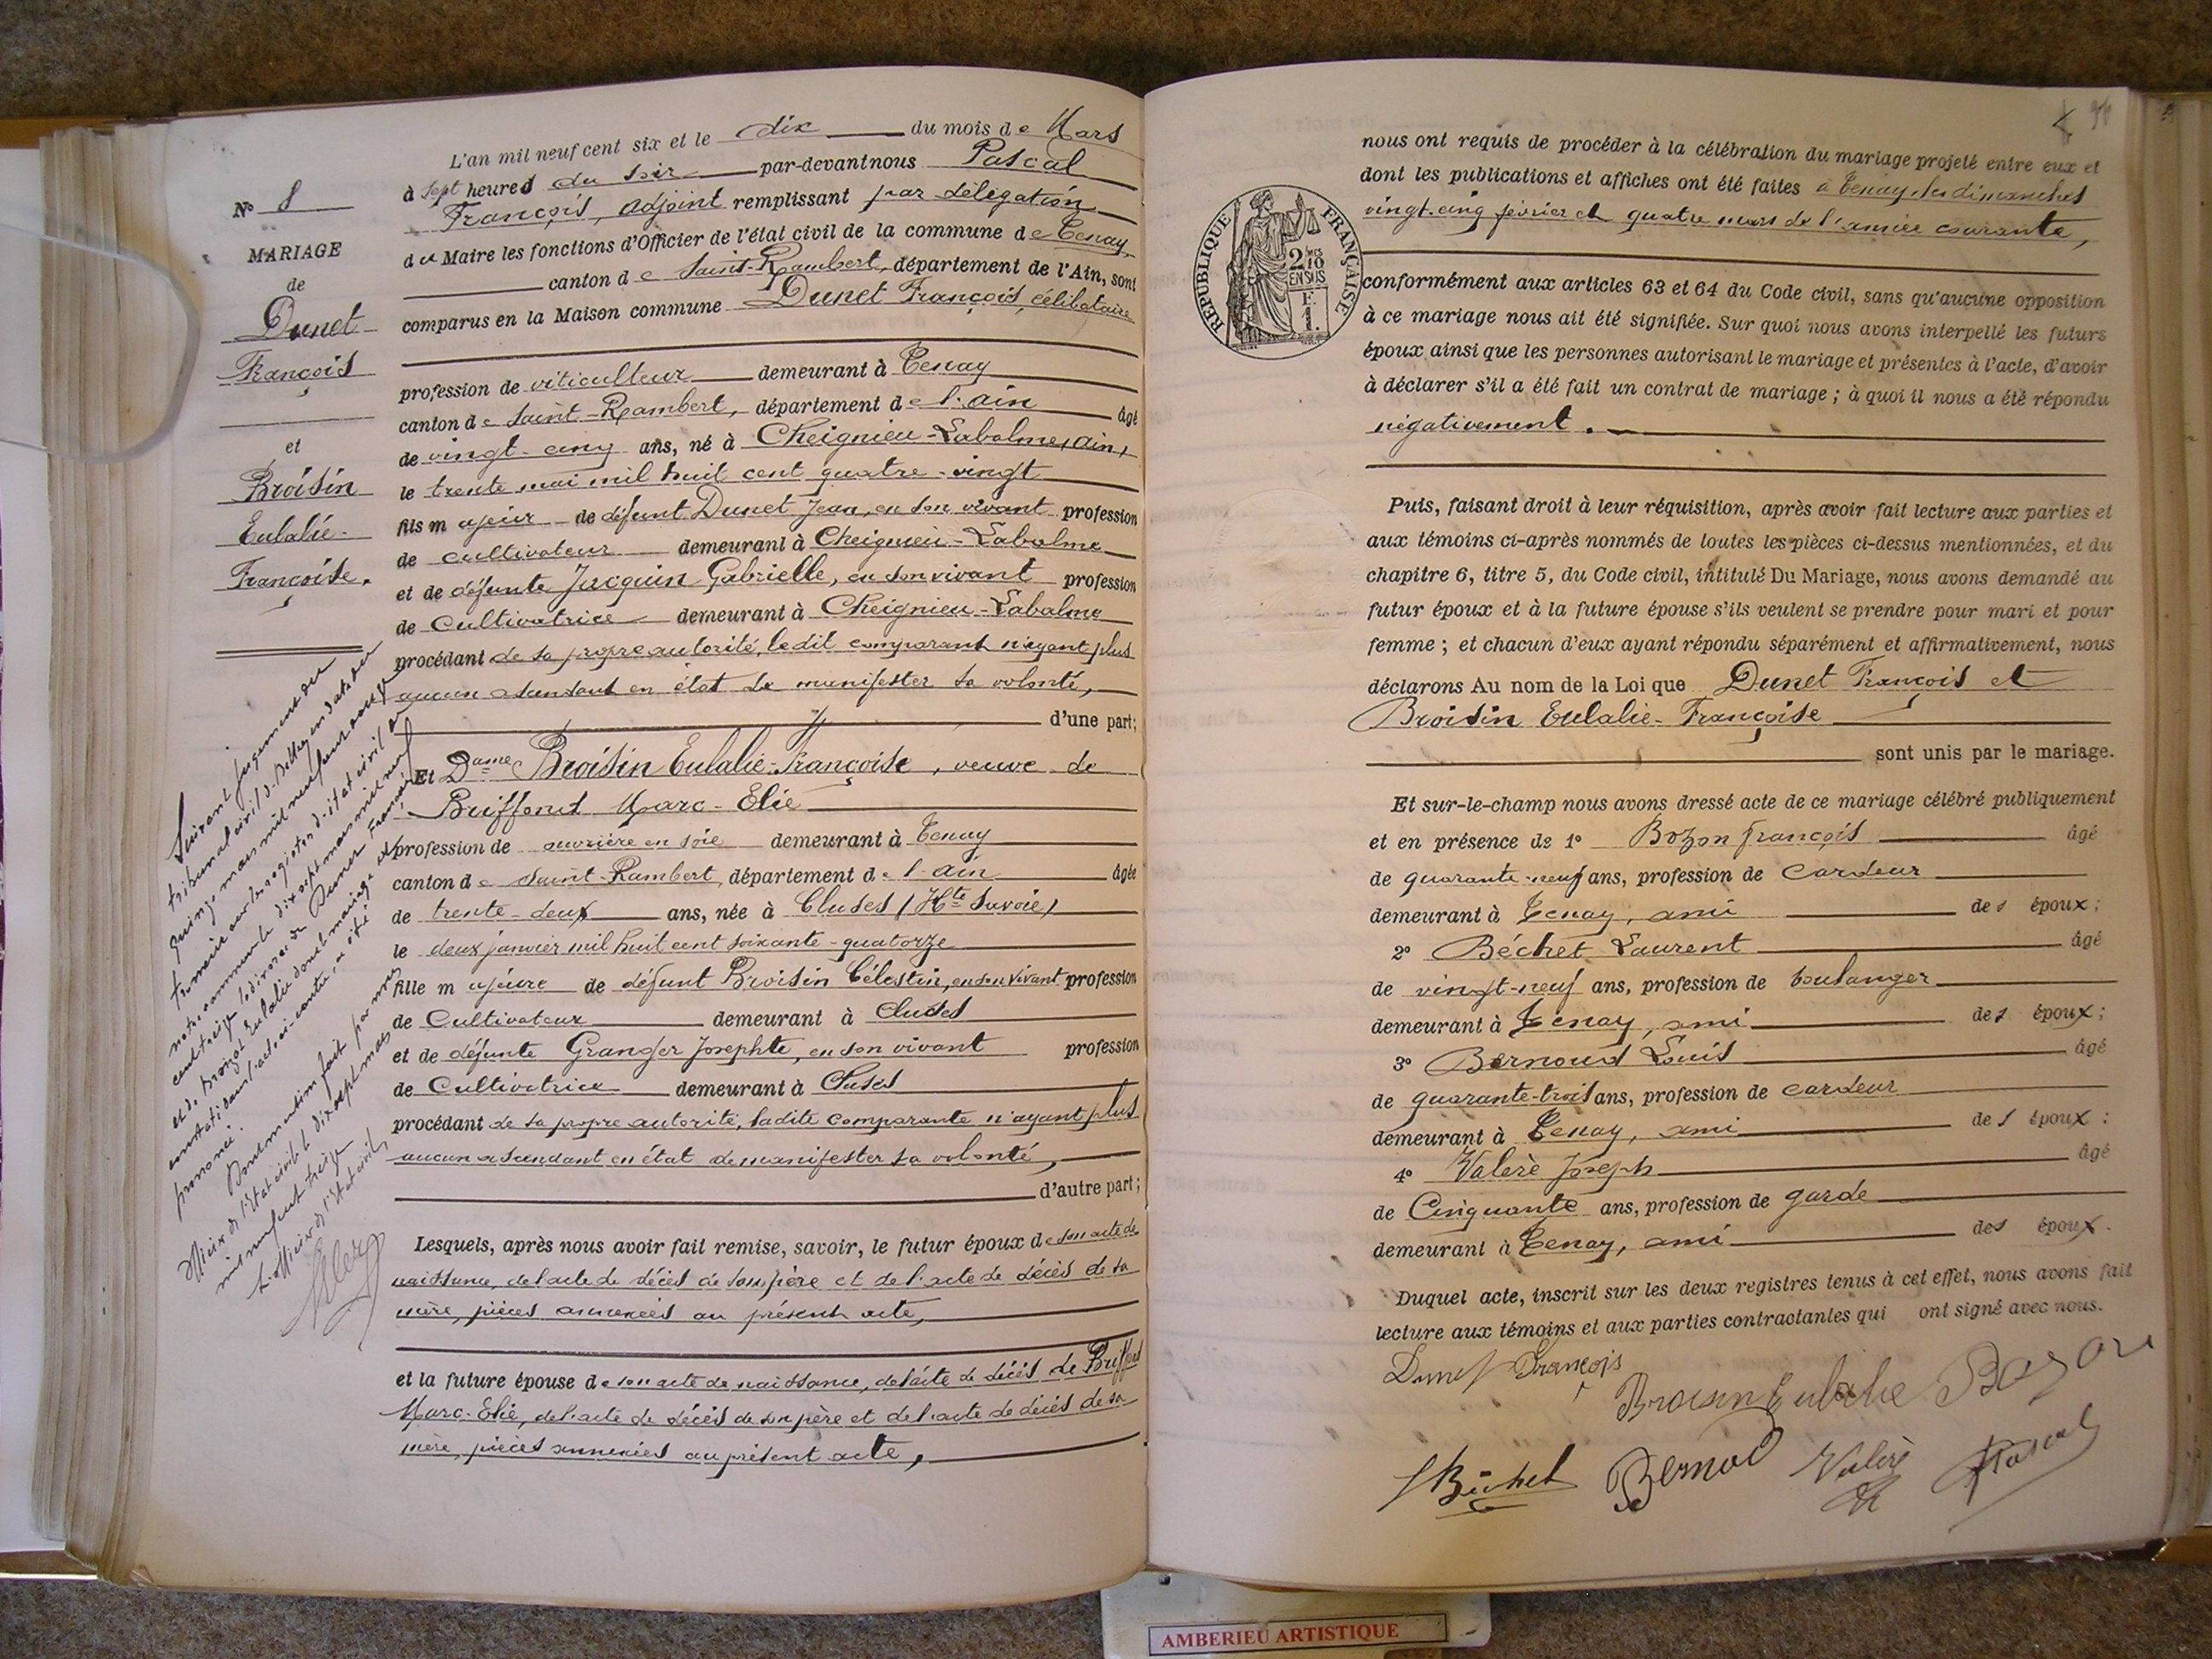 N° 8
MARIAGE
de
Dunet
François
et
Broisin
Eulalie-
Françoise.
L'an mil neuf cent six et le dix du mois de Mars
à sept heures du soir par-devant nous Pascal
François, adjoint remplissant par délégation
du Maire les fonctions d'Officier de l'état civil de la commune de Tenay,
canton de Saint-Rambert, département de l'Ain, sont
comparus en la Maison commune Dunet François, célibataire
profession de viticulteur demeurant à Tenay
canton de Saint-Rambert, département de l'ain âgé
de vingt-cinq ans, né à Cheignieu-Labalme, (ain)
le trente mai mil huit cent quatre-vingt
fils majeur de défunt Dunet Jean, en son vivant profession
de cultivateur demeurant à Cheignieu-Labalme
et de défunte Jacquin Gabrielle, en son vivant profession
de Cultivatrice demeurant à Cheignieu-Labalme
procédant de sa propre autorité, ledit comparant n'ayant plus
aucun ascendant en état de manifester sa volonté,
d'une part;
Et Dame Broisin Eulalie-Françoise, veuve de
Briffond Marc-Elie
profession de ouvrière en soie demeurant à Tenay
canton de Saint-Rambert, département de l'ain âgée
de trente-deux ans, née à Cluses (Hte Savoie)
le deux janvier mil huit cent soixante-quatorze
fille majeure de défunt Broisin Célestin, en son vivant profession
de Cultivateur demeurant à Cluses
et de défunte Granger Josephte, en son vivant profession
de Cultivatrice demeurant à Cluses
procédant de sa propre autorité, ladite comparante n'ayant plus
aucun ascendant en état de manifester sa volonté,
d'autre part;
Lesquels, après nous avoir fait remise, savoir, le futur époux de son acte de
naissance, de l'acte de décès de son père et de l'acte de décès de sa
mère, pièces annexées au présent acte,
et la future épouse de son acte de naissance, de l'acte de décès de Briffond
Marc-Elie, de l'acte de décès de son père et de l'acte de décès de sa
mère, pièces annexées au présent acte,
Suivant jugement du
tribunal civil de Belley en date du
quinze mars mil neuf cent
transcrit sur les registres de l'état civil de
notre commune le dix sept mars mil neuf
cent treize le divorce de Dunet François
et de Broisin Eulalie dont le mariage est
constaté dans l'acte ci-contre, a été
prononcé.
Dont mention fait par nous
officier de l'état civil le dix sept mars
mil neuf cent treize
L'officier de l'état civil,
nous ont requis de procéder à la célébration du mariage projeté entre eux et
dont les publications et affiches ont été faites à Tenay, les dimanches
vingt-cinq février et quatre mars de l'année courante,
RÉPUBLIQUE FRANÇAISE
2/10
EN SUS
F.
1.
conformément aux articles 63 et 64 du Code civil, sans qu'aucune opposition
à ce mariage nous ait été signifiée. Sur quoi nous avons interpellé les futurs
époux ainsi que les personnes autorisant le mariage et présentes à l'acte, d'avoir
à déclarer s'il a été fait un contrat de mariage ; à quoi il nous a été répondu
négativement.
Puis, faisant droit à leur réquisition, après avoir fait lecture aux parties et
aux témoins ci-après nommés de toutes les pièces ci-dessus mentionnées, et du
chapitre 6, titre 5, du Code civil, intitulé Du Mariage, nous avons demandé au
futur époux et à la future épouse s'ils veulent se prendre pour mari et pour
femme ; et chacun d'eux ayant répondu séparément et affirmativement, nous
déclarons Au nom de la Loi que Dunet François et
Broisin Eulalie-Françoise
sont unis par le mariage.
Et sur-le-champ nous avons dressé acte de ce mariage célébré publiquement
et en présence de 1° Bozon françois âgé
de quarante-neuf ans, profession de Cardeur
demeurant à Tenay, ami des époux ;
2° Béchet Laurent âgé
de vingt-neuf ans, profession de boulanger
demeurant à Tenay, ami des époux ;
3° Bernoud Louis âgé
de quarante-trois ans, profession de cardeur
demeurant à Tenay, ami des époux ;
4° Valerè Joseph âgé
de Cinquante ans, profession de garde
demeurant à Tenay, ami des époux.
Duquel acte, inscrit sur les deux registres tenus à cet effet, nous avons fait
lecture aux témoins et aux parties contractantes qui ont signé avec nous.
Dunet François
Broisin Eulalie Bozon
Béchet Bernod Valerè Pascal
AMBERIEU ARTISTIQUE